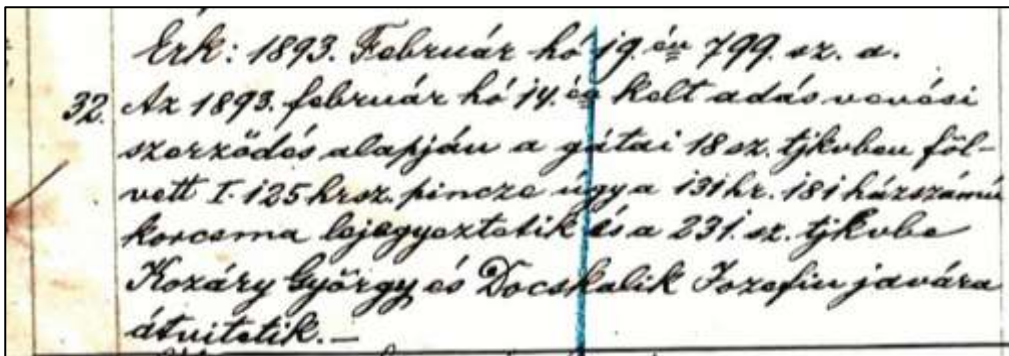 Érk: 1893. Február hó 19. én 799. sz. a.
32. Az 1893. február hó 14. én kelt adás vevési
szerződés alapján a gátai 18 sz. tjkvben föl-
vett I. 125 hrsz. pincze úgy a 131 hr. 181 házszámú
korcsma lejegyeztetik és a 231. sz. tjkvbe
Kozáry György és Docskalik Jozefin javára
átvitetik.—